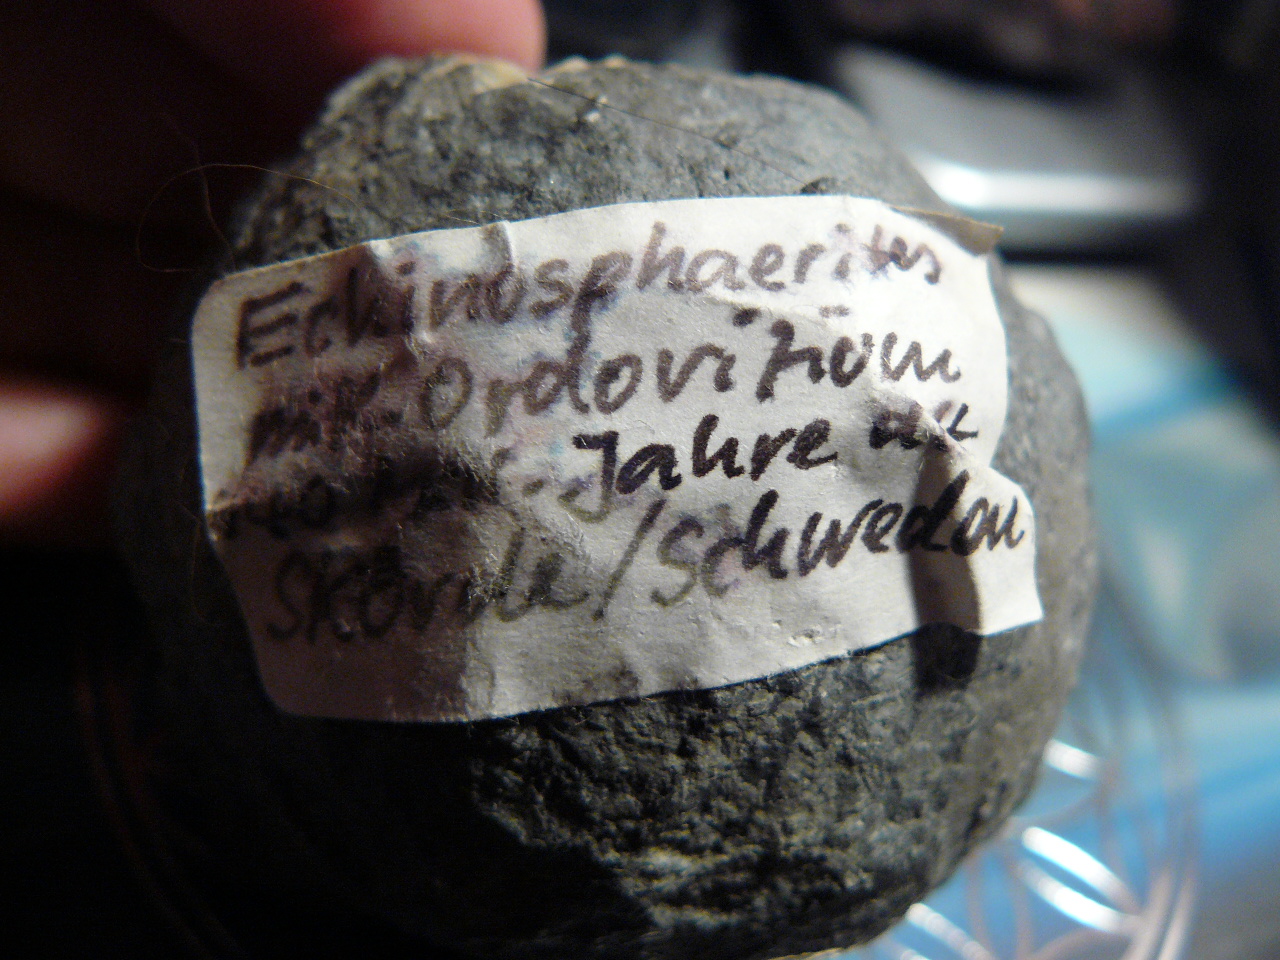 Echinosphaerites
mitt. Ordovizium
440 Jahre alt
Skövde/Schweden